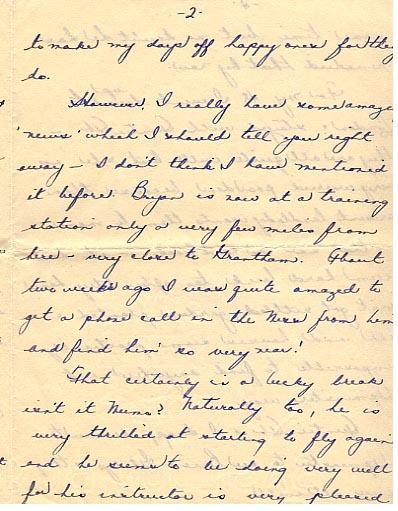 -2-
to make my days off happy ones for they
do.
However, I really have some amaze
'news' which I should tell you right
away - I don't think I have mentioned
it before. Bryan is now at a training
station only a very few miles from
here - very close to Grantham. About
two weeks ago I was quite amazed to
get a phone call in the Mess from him
and find him so very near!
That certainly is a lucky break
isn't it Mums? Naturally too, he is
very thrilled at starting to fly again
and he seems to be doing very well
for his instructor is very pleased